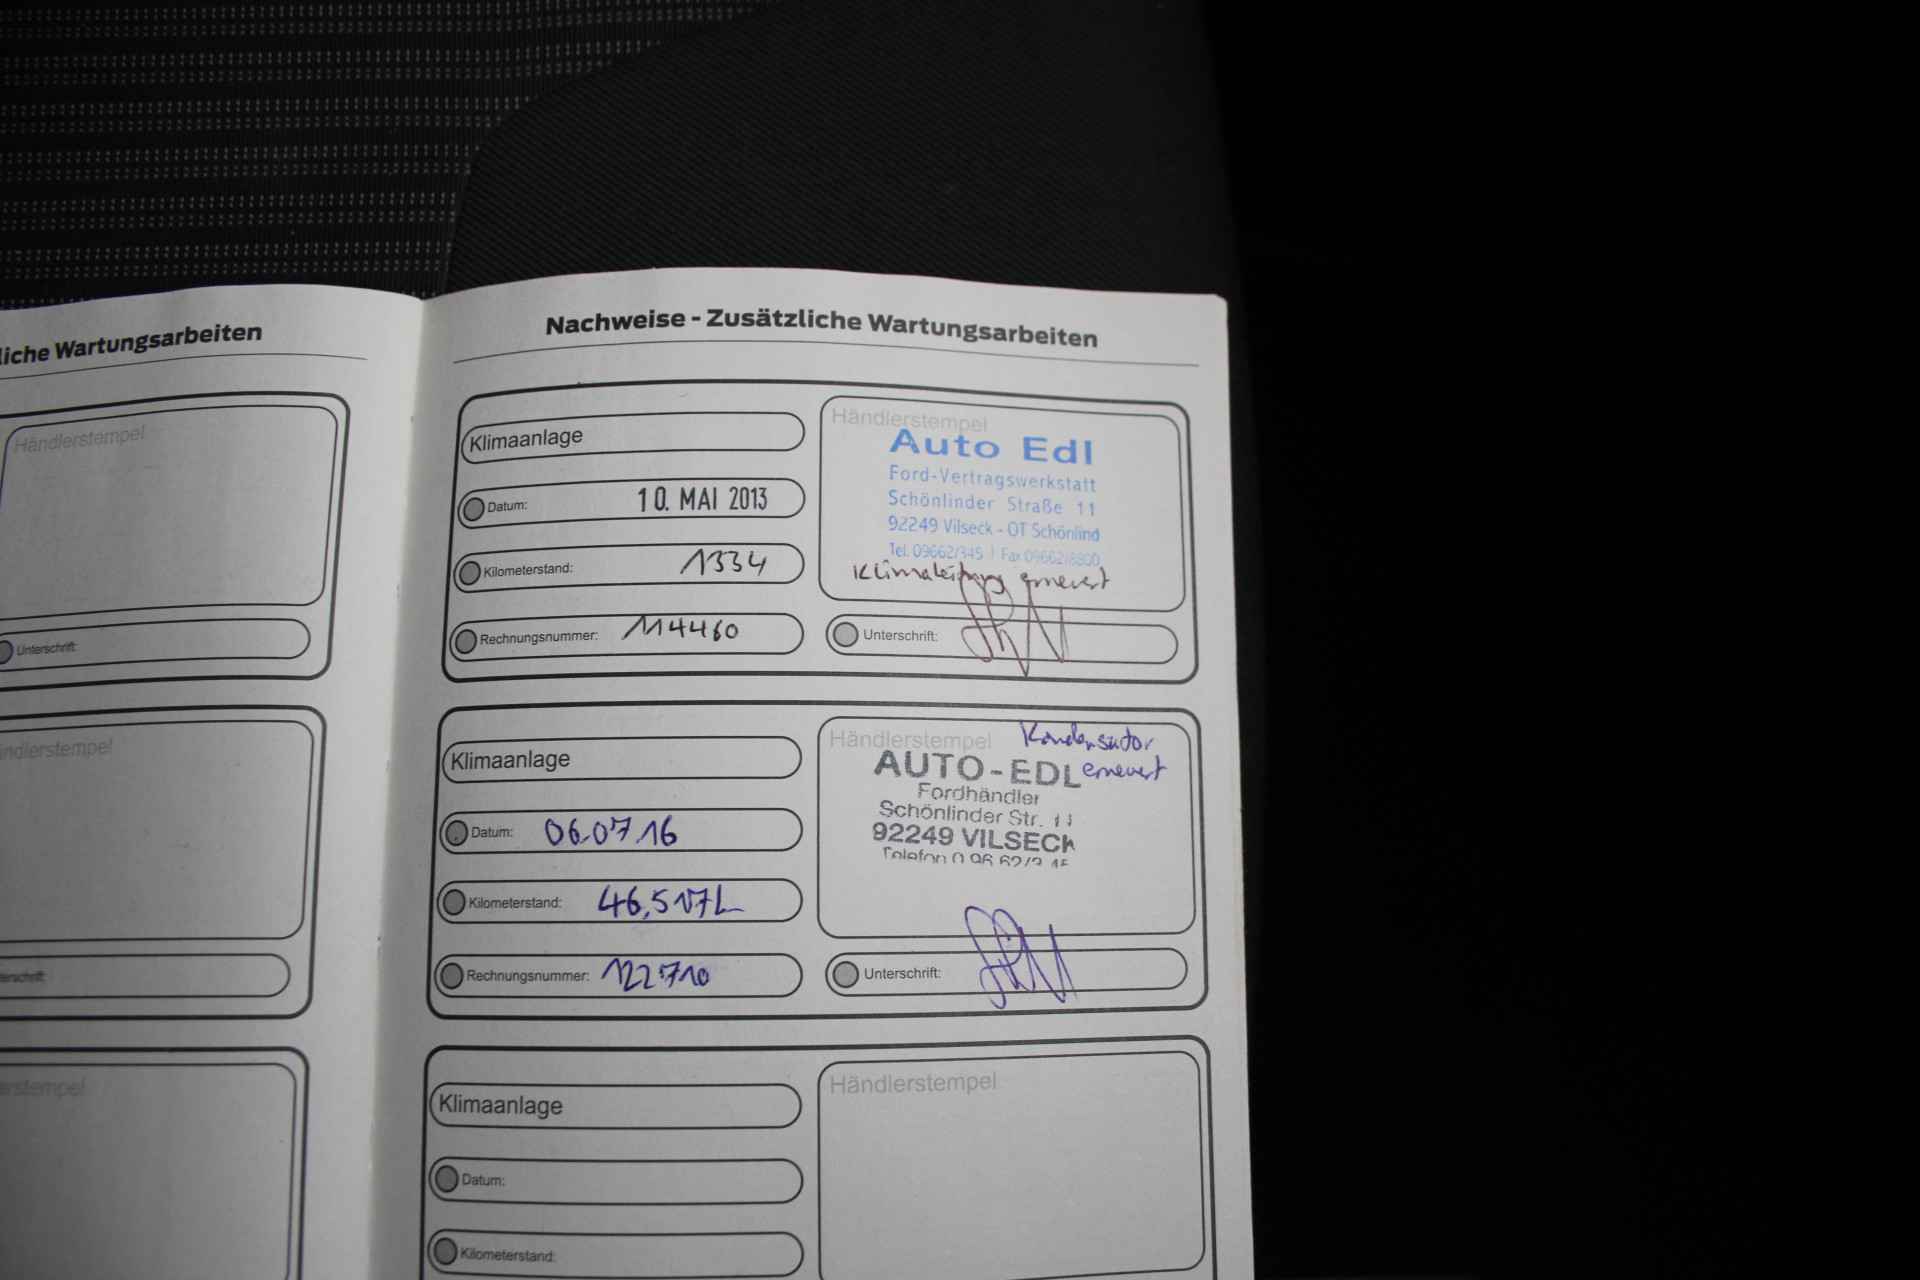 liche Wartungsarbeiten
Händlerstempel
Unterschrift:
ndlerstempel
erschrift:
erstempel
Nachweise - Zusätzliche Wartungsarbeiten
Klimaanlage
Datum: 10. MAI 2013
Kilometerstand: 1334
Rechnungsnummer: 114460
Händlerstempel
Auto Edl
Ford-Vertragswerkstatt
Schönlinder Straße 11
92249 Vilseck - OT Schönlind
Tel. 09662/345 | Fax 09662/8800
Klimaleitung erneuert
Unterschrift:
Klimaanlage
Datum: 06.07.16
Kilometerstand: 46,517
Rechnungsnummer: 122710
Händlerstempel
Kondensator
erneuert
AUTO-EDL
Fordhändler
Schönlinder Str. 11
92249 VILSECK
Telefon 0 96 62/3 45
Unterschrift:
Klimaanlage
Datum:
Kilometerstand:
Händlerstempel